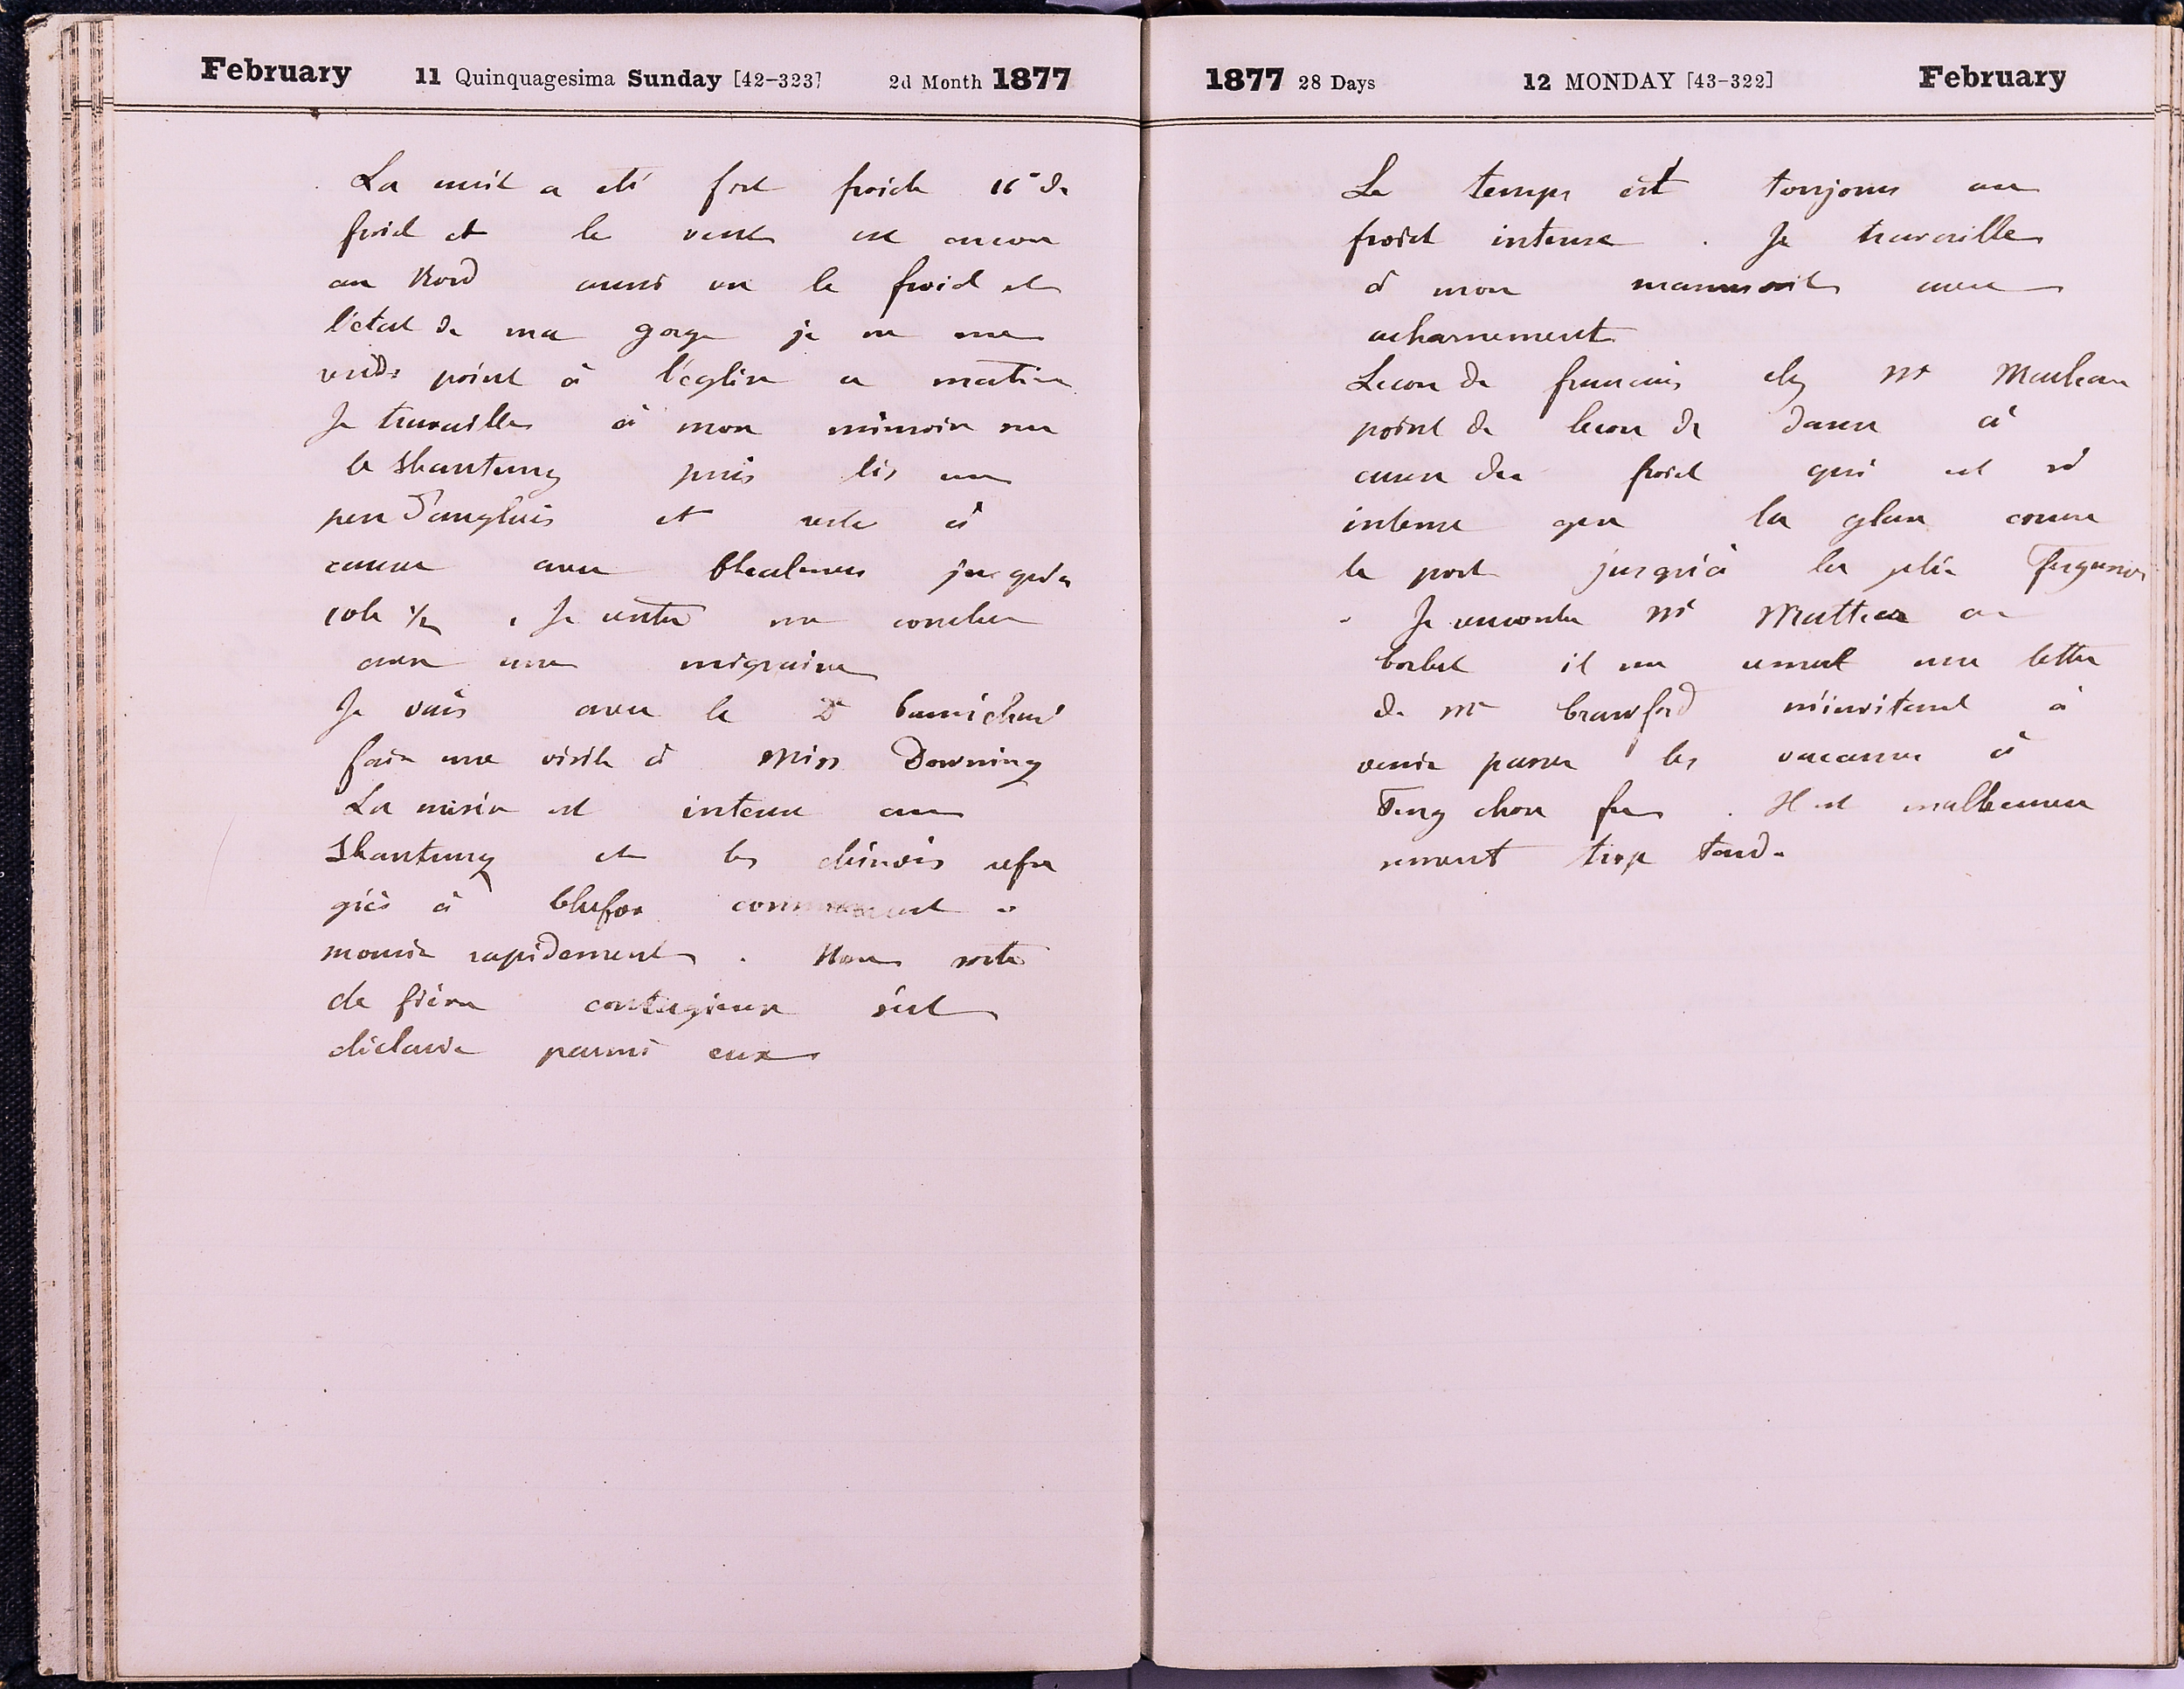 February 11 Quinquagesima Sunday [42-323] 2d Month 1877
La nuit a été fort froide 16° de
froid et le vent est encore
au Nord aussi vu le froid et
l'état de ma gorge je ne me
rends point à l'église ce matin
Je travaille à mon mémoire sur
le Shantung puis lis un
peu d'anglais et reste à
causer avec jusqu'à
10h ½. Je rentre me coucher
avec une migraine
Je vais avec le Dr Carmichael
faire une visite à Miss Downing
La misère est intense au
Shantung et les chinois refu
giés à Chefoo commencent à
mourir rapidement. Une sorte
de fièvre contagieuse s'est
déclarée parmi eux
1877 28 Days 12 MONDAY [43-322] February
Le temps est toujours au
froid intense. Je travaille
à mon manuscrit avec
acharnement
Lecon de francais chez Mr
point de lecon de danse à
cause du froid qui est si
intense que la glace couvre
le port jusqu'à la jetée Ferguson
- Je rencontre Mr au
il me remet une lettre
de Mr Crawford m'invitant à
venir passer les vacances à
Teng chou fu. Il est malheureu
sement trop tard.